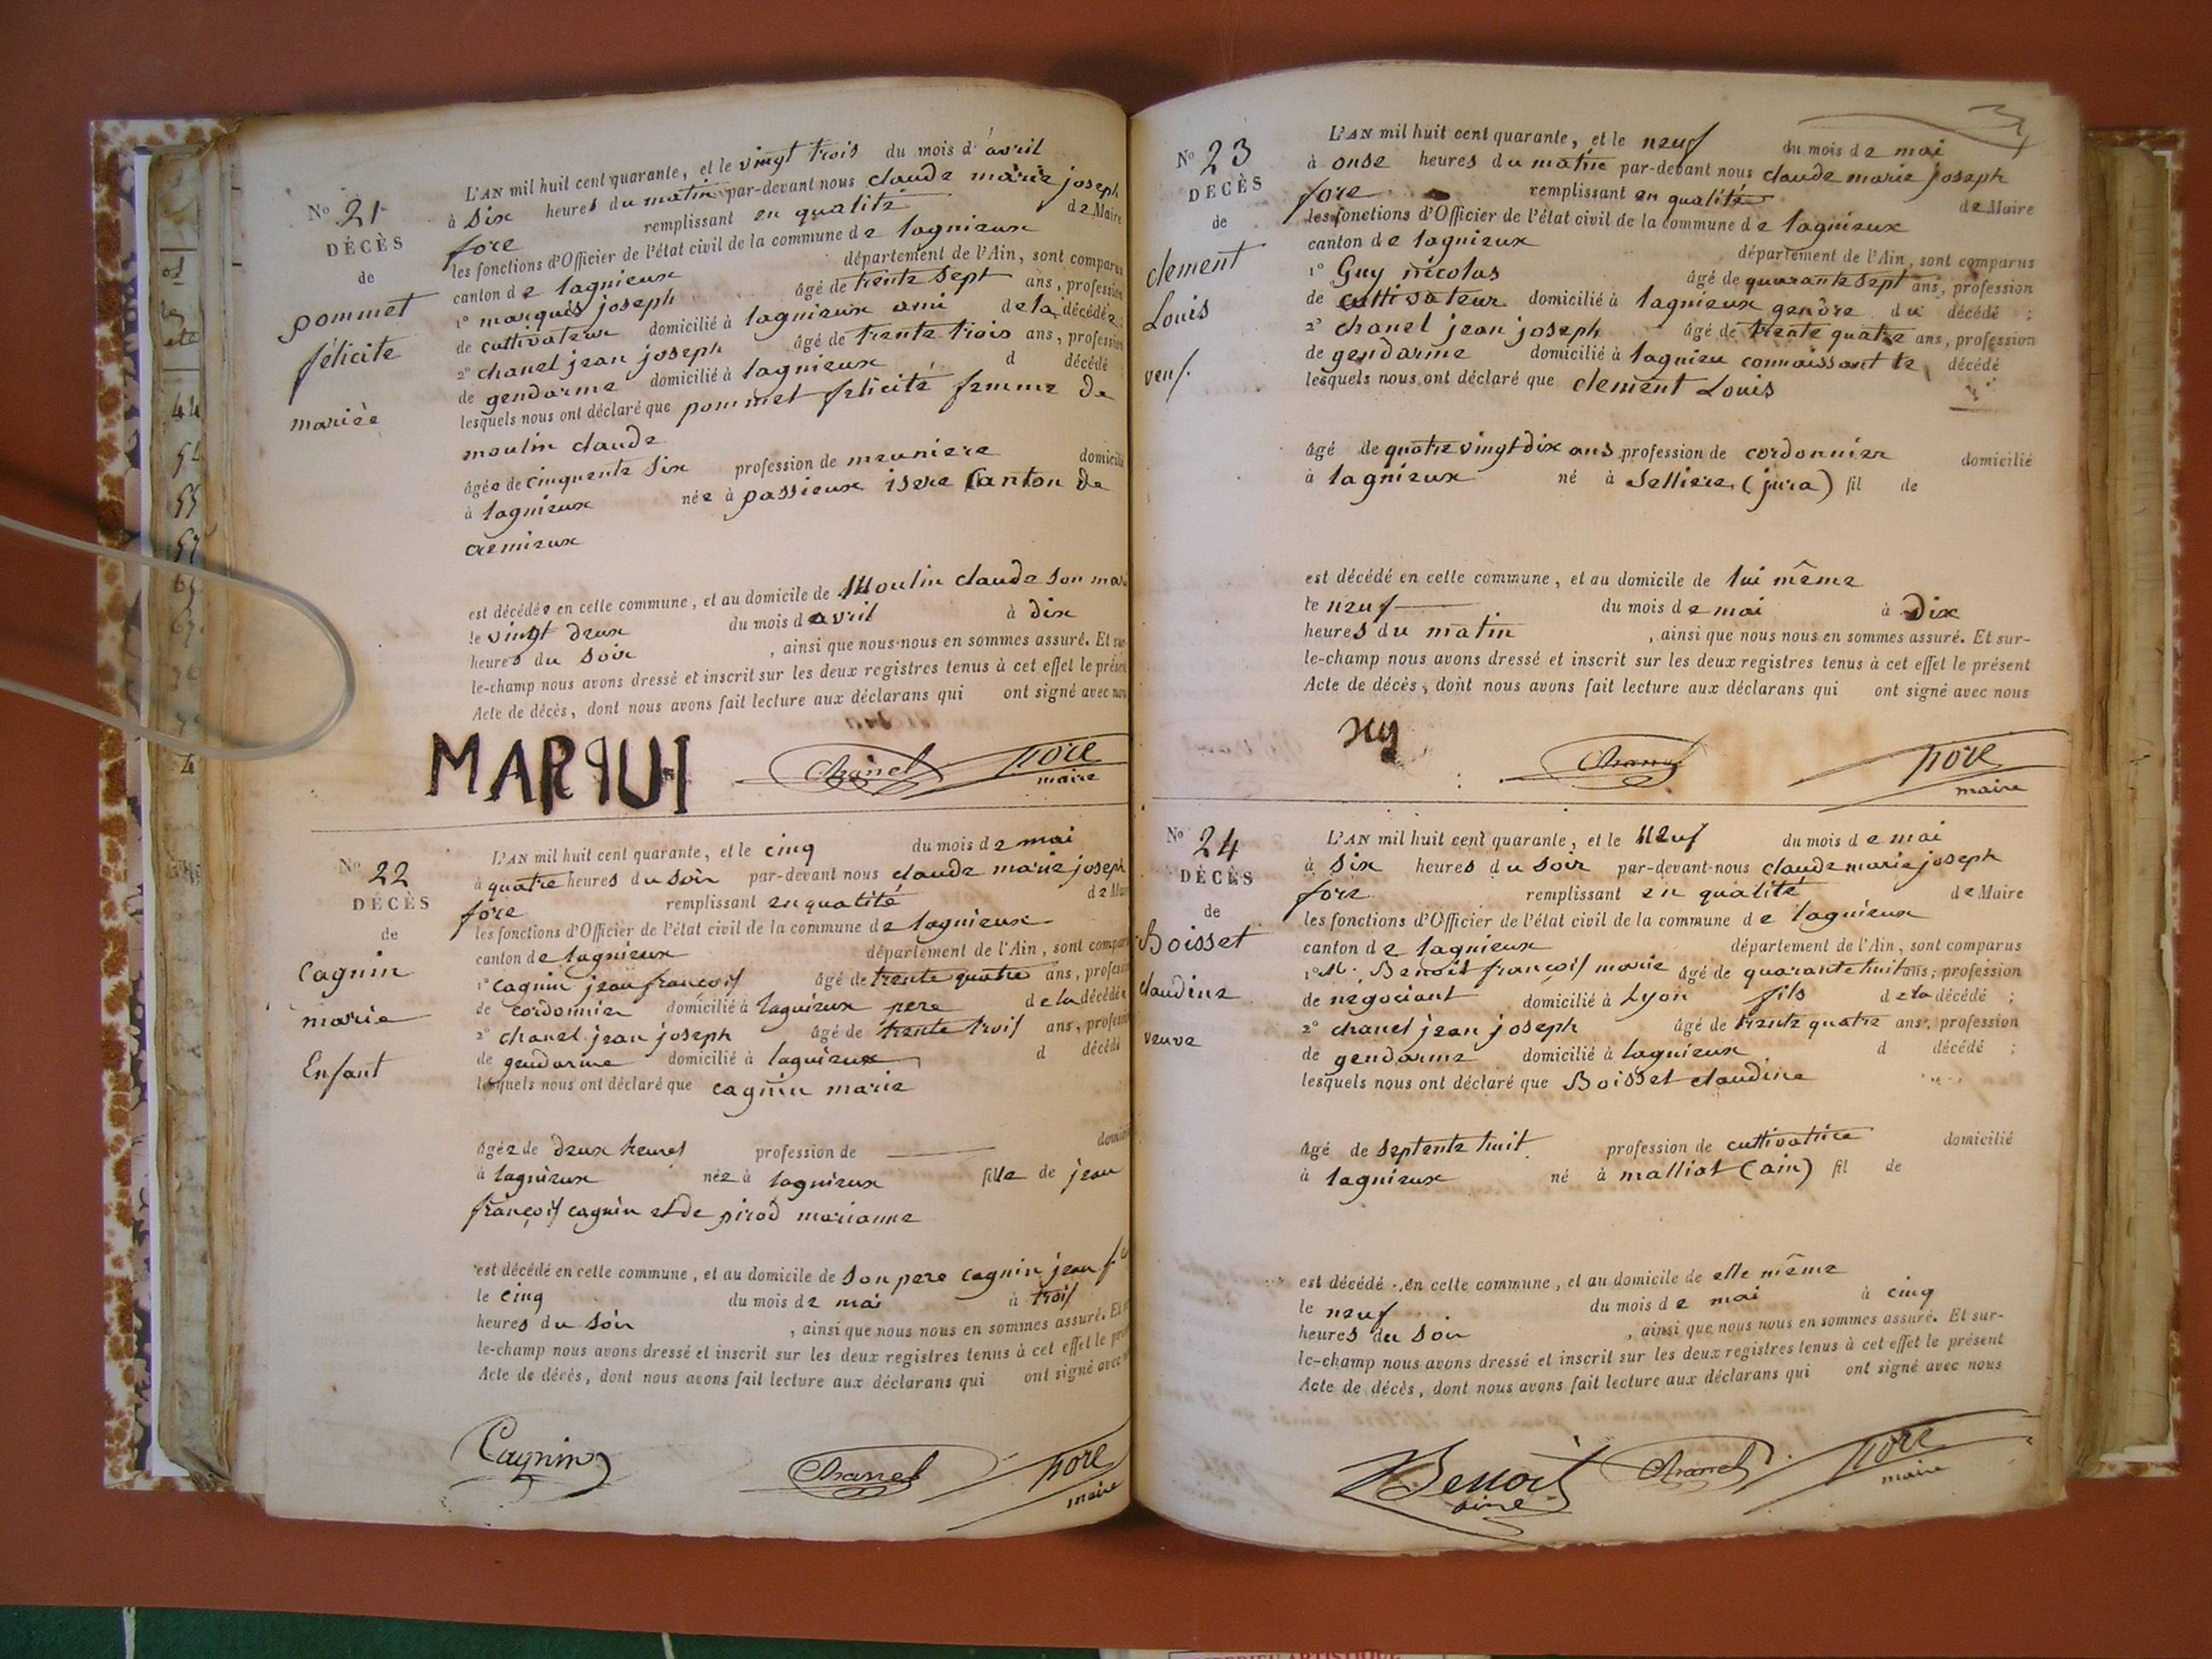 No 21
DÉCÈS
de
pommet
félicite
mariéè
L'AN mil huit cent quarante, et le vingt trois du mois d'avril
à six heures du matin par-devant nous claude marie joseph
fore remplissant en qualité de Maire
les fonctions d'Officier de l'état civil de la commune de lagnieux
canton de lagnieux département de l'Ain, sont comparus
1° marquis joseph âgé de trente sept ans, profession
de cultivateur domicilié à lagnieux ami de la décédée;
2° chanel jean joseph âgé de trente trois ans, profession
de gendarme domicilié à lagnieux d décédé
lesquels nous ont déclaré que pommet félicité femme de
moulin claude
âgée de cinquente six profession de meuniere domicilié
à lagnieux née à passieux isere Canton de
cremieux
est décédée en cette commune, et au domicile de Moulin claude son mari
le vingt deux du mois d avril à dix
heures du soir , ainsi que nous nous en sommes assuré. Et sur-
le-champ nous avons dressé et inscrit sur les deux registres tenus à cet effet le présent
Acte de décès, dont nous avons fait lecture aux déclarans qui ont signé avec nous
MARQUI Chanel fore
maire
No 22
DÉCÈS
de
Cagnin
marie
Enfant
L'AN mil huit cent quarante, et le cinq du mois de mai
à quatre heures du soir par-devant nous claude marie joseph
fore remplissant en qualité de Maire
les fonctions d'Officier de l'état civil de la commune de lagnieux
canton de lagnieux département de l'Ain, sont comparus
1° cagnin jean françois âgé de trente quatre ans, profession
de cordonnier domicilié à lagnieux pere de la décédée
2° chanel jean joseph âgé de trente trois ans, profession
de gendarme domicilié à lagnieux d décédé
lesquels nous ont déclaré que cagnin marie
âgée de deux heures profession de domicilié
à lagnieux née à lagnieux fille de jean
françois cagnin et de pirod marianne
est décédé en cette commune, et au domicile de son pere cagnin jean f
le cinq du mois de mai à trois
heures du soir , ainsi que nous nous en sommes assuré. Et
le-champ nous avons dressé et inscrit sur les deux registres tenus à cet effet le présent
Acte de décès, dont nous avons fait lecture aux déclarans qui ont signé avec
Cagnin Chanel fore
maire
No 23
DÉCÈS
de
clement
Louis
veuf.
L'AN mil huit cent quarante, et le neuf du mois de mai
à onse heures du matin par-devant nous claude marie joseph
fore remplissant en qualité de Maire
les fonctions d'Officier de l'état civil de la commune de lagnieux
canton de lagnieux département de l'Ain, sont comparus
1° Guy nicolas âgé de quarante sept ans, profession
de cultivateur domicilié à lagnieux gendre du décédé ;
2° chanel jean joseph âgé de trente quatre ans, profession
de gendarme domicilié à lagnieu connaissant le décédé
lesquels nous ont déclaré que clement Louis
âgé de quatre vingt dix ans profession de cordonnier domicilié
à lagnieux né à Selliere (jura) fil de
est décédé en cette commune, et au domicile de lui même
le neuf du mois de mai à dix
heures du matin , ainsi que nous nous en sommes assuré. Et sur-
le-champ nous avons dressé et inscrit sur les deux registres tenus à cet effet le présent
Acte de décès, dont nous avons fait lecture aux déclarans qui ont signé avec nous
Chanel fore
maire
No 24
DÉCÈS
de
Boisset
claudine
veuve
L'AN mil huit cent quarante, et le neuf du mois de mai
à six heures du soir par-devant-nous claude marie joseph
fore remplissant en qualité de Maire
les fonctions d'Officier de l'état civil de la commune de lagnieux
canton de lagnieux département de l'Ain, sont comparus
1° M. Benoit françois marie âgé de quarante huit ans, profession
de négociant domicilié à Lyon fils de la décédé ;
2° chanel jean joseph âgé de trente quatre ans, profession
de gendarme domicilié à lagnieux d décédé ;
lesquels nous ont déclaré que Boisset claudine
âgé de septente huit profession de cultivatrice domicilié
à lagnieux né à malliat (ain) fil de
est décédé en cette commune, et au domicile de elle même
le neuf du mois de mai à cinq
heures du soir , ainsi que nous nous en sommes assuré. Et sur-
le-champ nous avons dressé et inscrit sur les deux registres tenus à cet effet le présent
Acte de décès, dont nous avons fait lecture aux déclarans qui ont signé avec nous
Benoit Chanel fore
ainé maire